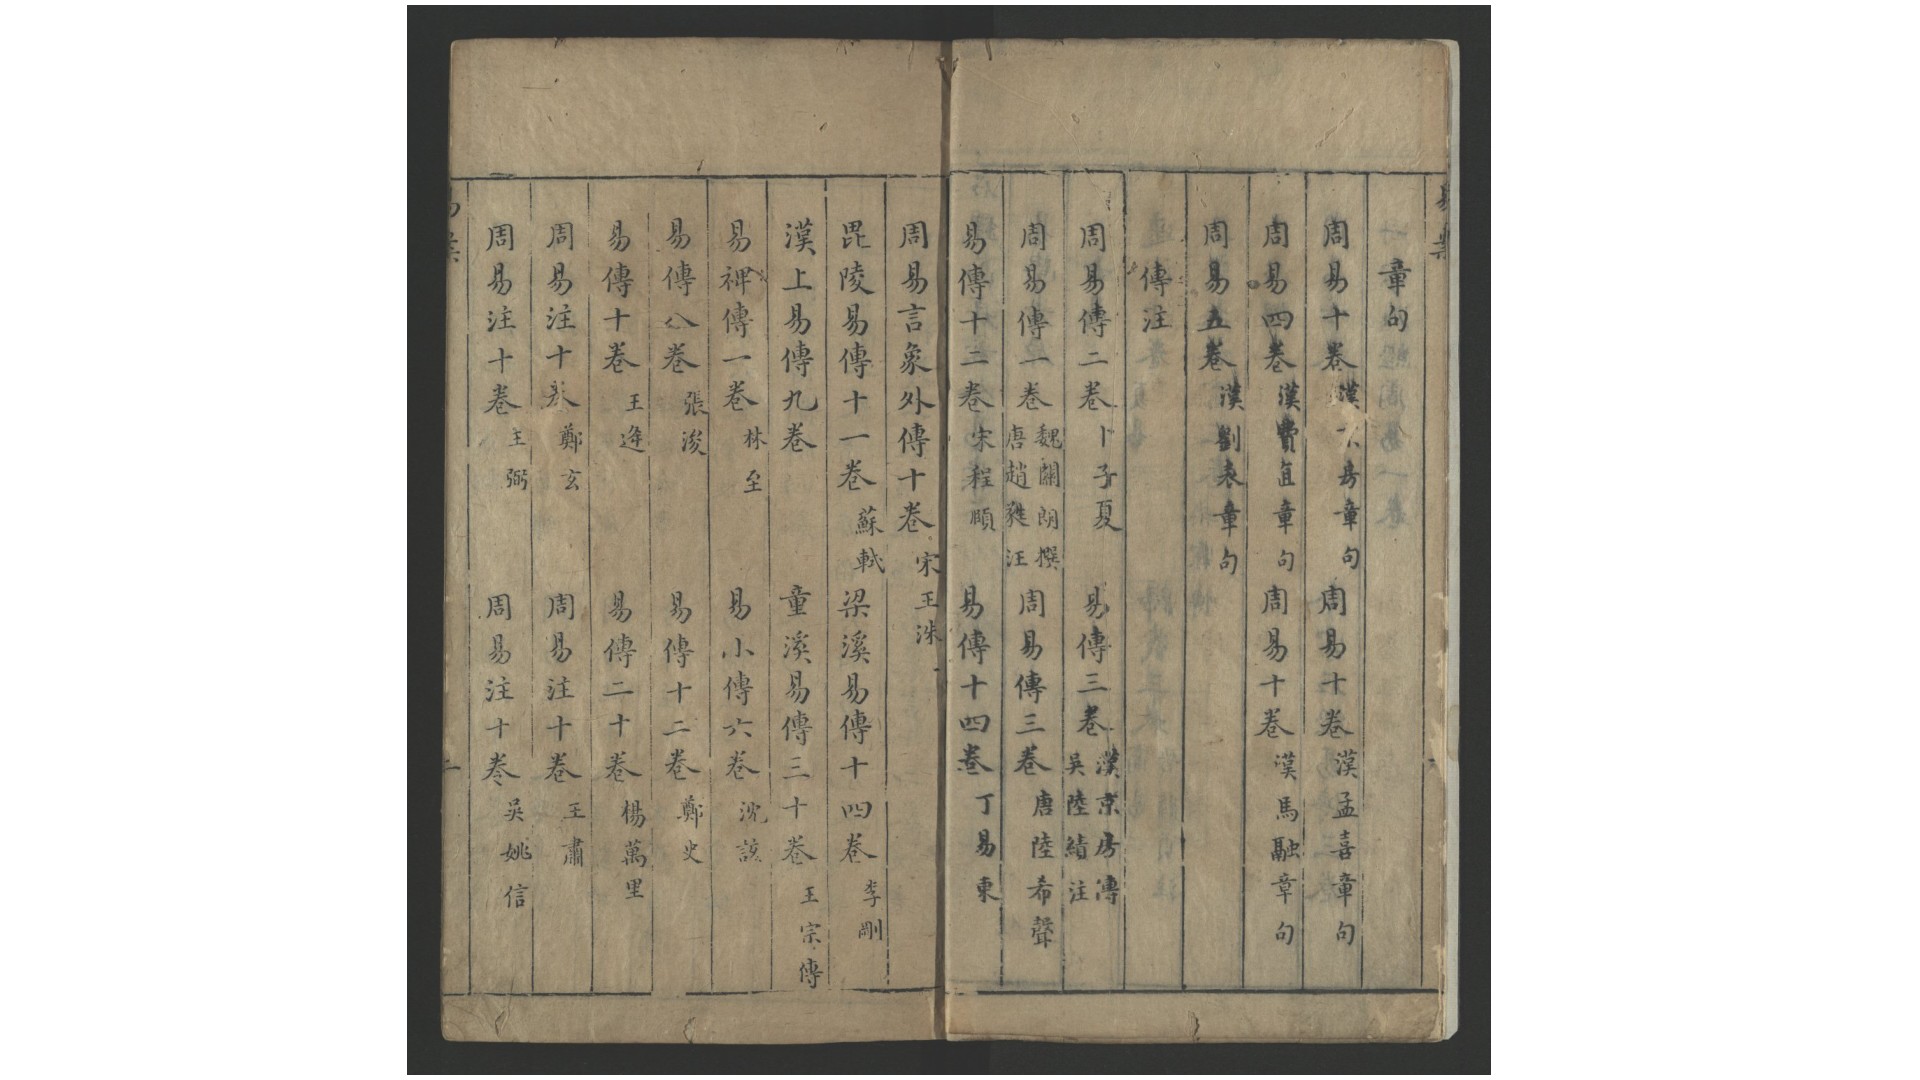 章句
周易十卷 漢京房章句 周易十卷 漢孟喜章句
周易四卷 漢費直章句 周易十卷 漢馬融章句
周易五卷 漢劉表章句
傳注
周易傳二卷 卜子夏 易傳三卷 漢京房傳 吳陸績注
周易傳一卷 魏關朗撰 唐趙蕤注 周易傳三卷 唐陸希聲
易傳十二卷 宋程頤 易傳十四卷 丁易東
周易言象外傳十卷 宋王洙
毘陵易傳十一卷 蘇軾 梁溪易傳十四卷 李剛
漢上易傳九卷 童溪易傳三十卷 王宗傳
易裨傳一卷 林至 易小傳六卷 沈該
易傳八卷 張浚 易傳十二卷 鄭史
易傳十卷 王逄 易傳二十卷 楊萬里
周易注十卷 鄭玄 周易注十卷 王肅
周易注十卷 王弼 周易注十卷 吳姚信